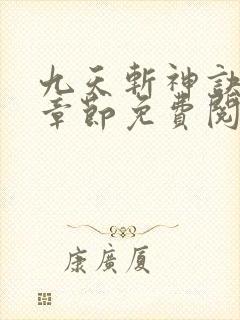 九天斬神訣
章節免費閱
康廣厦